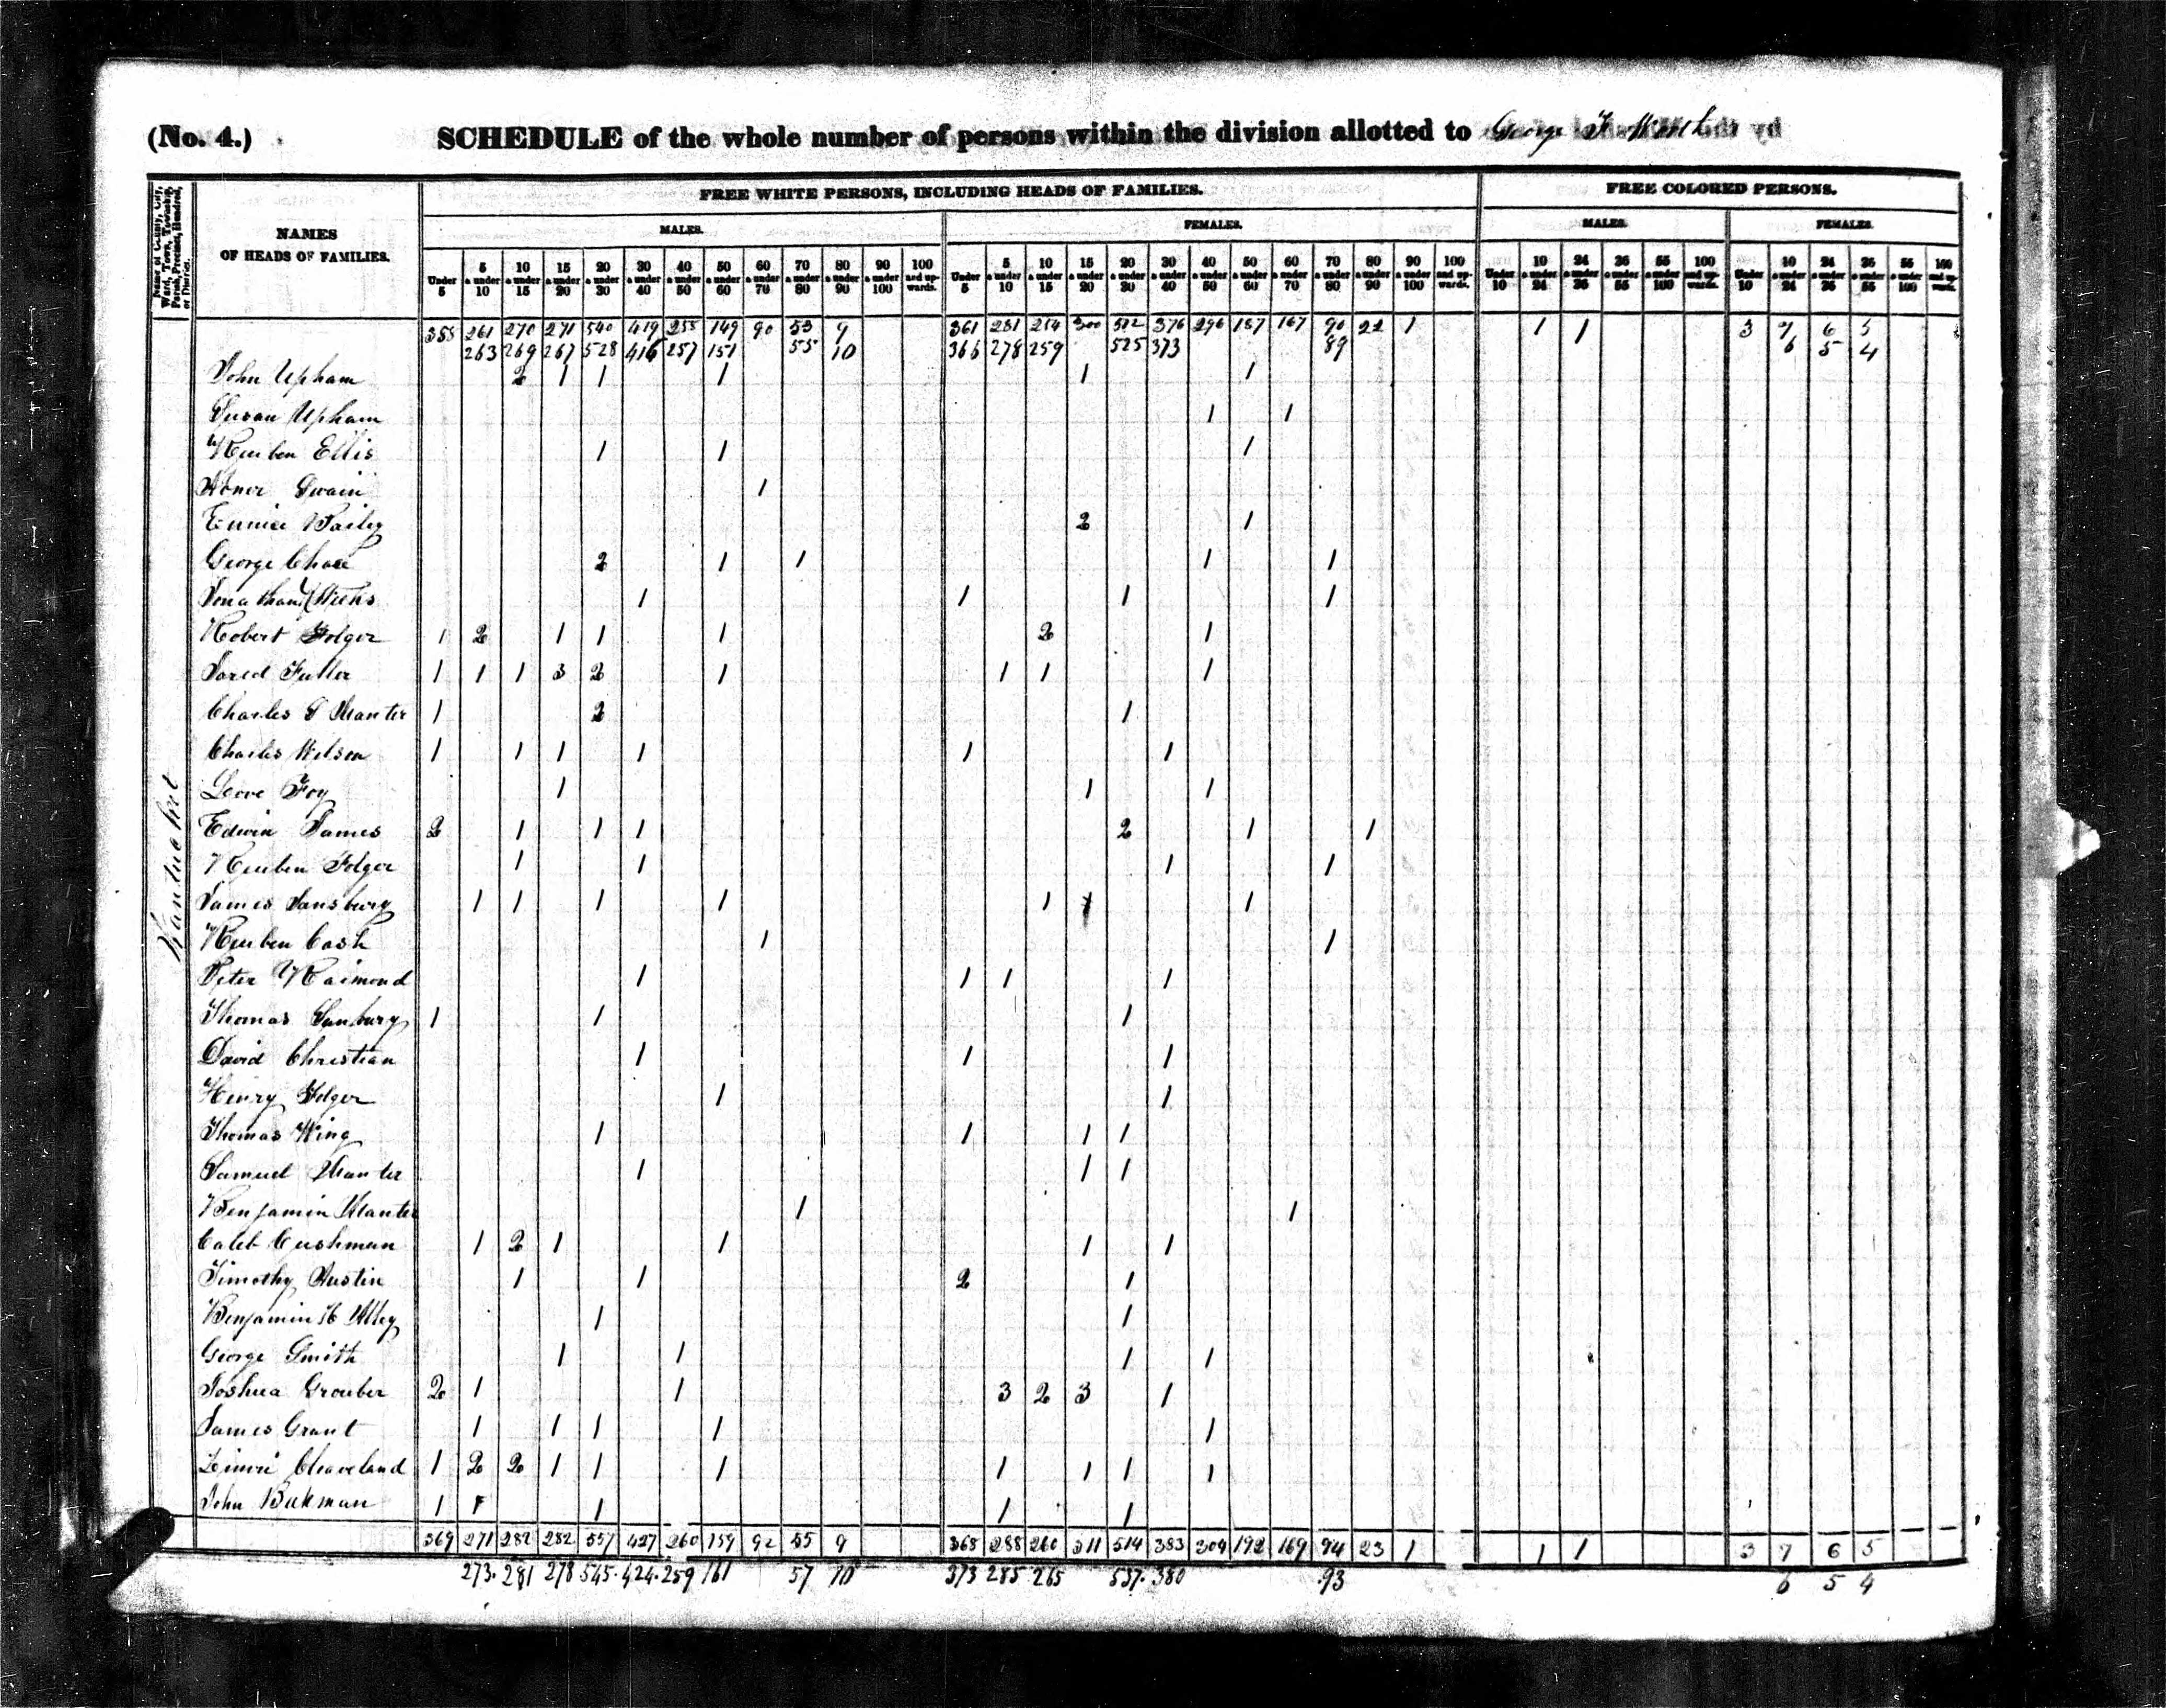 (No. 4.) SCHEDULE of the whole number of persons within the division allotted to George F
Name of County, City, Ward, Town, Township, Parish, Precinct, Hundred, or District.
NAMES OF HEADS OF FAMILIES.
FREE WHITE PERSONS, INCLUDING HEADS OF FAMILIES.
FREE COLORED PERSONS.
MALES. FEMALES. MALES. FEMALES.
Under 5 | 5 & under 10 | 10 & under 15 | 15 & under 20 | 20 & under 30 | 30 & under 40 | 40 & under 50 | 50 & under 60 | 60 & under 70 | 70 & under 80 | 80 & under 90 | 90 & under 100 | 100 and upwards. | Under 5 | 5 & under 10 | 10 & under 15 | 15 & under 20 | 20 & under 30 | 30 & under 40 | 40 & under 50 | 50 & under 60 | 60 & under 70 | 70 & under 80 | 80 & under 90 | 90 & under 100 | 100 and upwards. | Under 10 | 10 & under 24 | 24 & under 36 | 36 & under 55 | 55 & under 100 | 100 and upwards. | Under 10 | 10 & under 24 | 24 & under 36 | 36 & under 55 | 55 & under 100 | 100 and upwards.
358 261 270 271 540 419 258 149 90 53 9 361 281 254 300 376 296 187 167 90 22 1 1 1 3 7 6 5
263 269 267 528 416 257 151 55 10 366 278 259 525 373 89 6 5 4
John Upham 2 1 1 1 1 1
Susan Upham 1 1
Reuben Ellis 1 1 1
Abner Swain 1
Eunice Bailey 2 1
George Chase 2 1 1 1 1
Jonathan 1 1 1 1
Robert Folger 1 2 1 1 1 2 1
Jared Fuller 1 1 1 3 2 1 1 1 1
Charles G Manter 1 2 1
Charles Wilson 1 1 1 1 1 1
Foy 1 1 1
Edwin James 2 1 1 1 2 1 1
Reuben Folger 1 1 1 1
James Sansbury 1 1 1 1 1 1 1
Reuben Cash 1 1
Peter Raimond 1 1 1 1
Thomas Sunbury 1 1 1
David Christian 1 1 1
Henry Folger 1 1
Thomas Wing 1 1 1 1
Samuel Manter 1 1 1
Benjamin Manter 1 1
Caleb Cushman 1 2 1 1 1 1
Timothy Austin 1 1 2 1
Benjamin H Alley 1 1
George Smith 1 1 1 1
Joshua Grouber 2 1 1 3 2 3 1
James Grant 1 1 1 1 1
Zimri Cleaveland 1 2 2 1 1 1 1 1 1 1
John 1 1 1 1
Nantucket
369 271 282 282 557 427 260 159 92 55 9 368 288 260 311 514 383 304 192 169 94 23 1 1 1 3 7 6 5
273 281 278 545 424 259 161 57 10 373 285 265 537 380 93 6 5 4